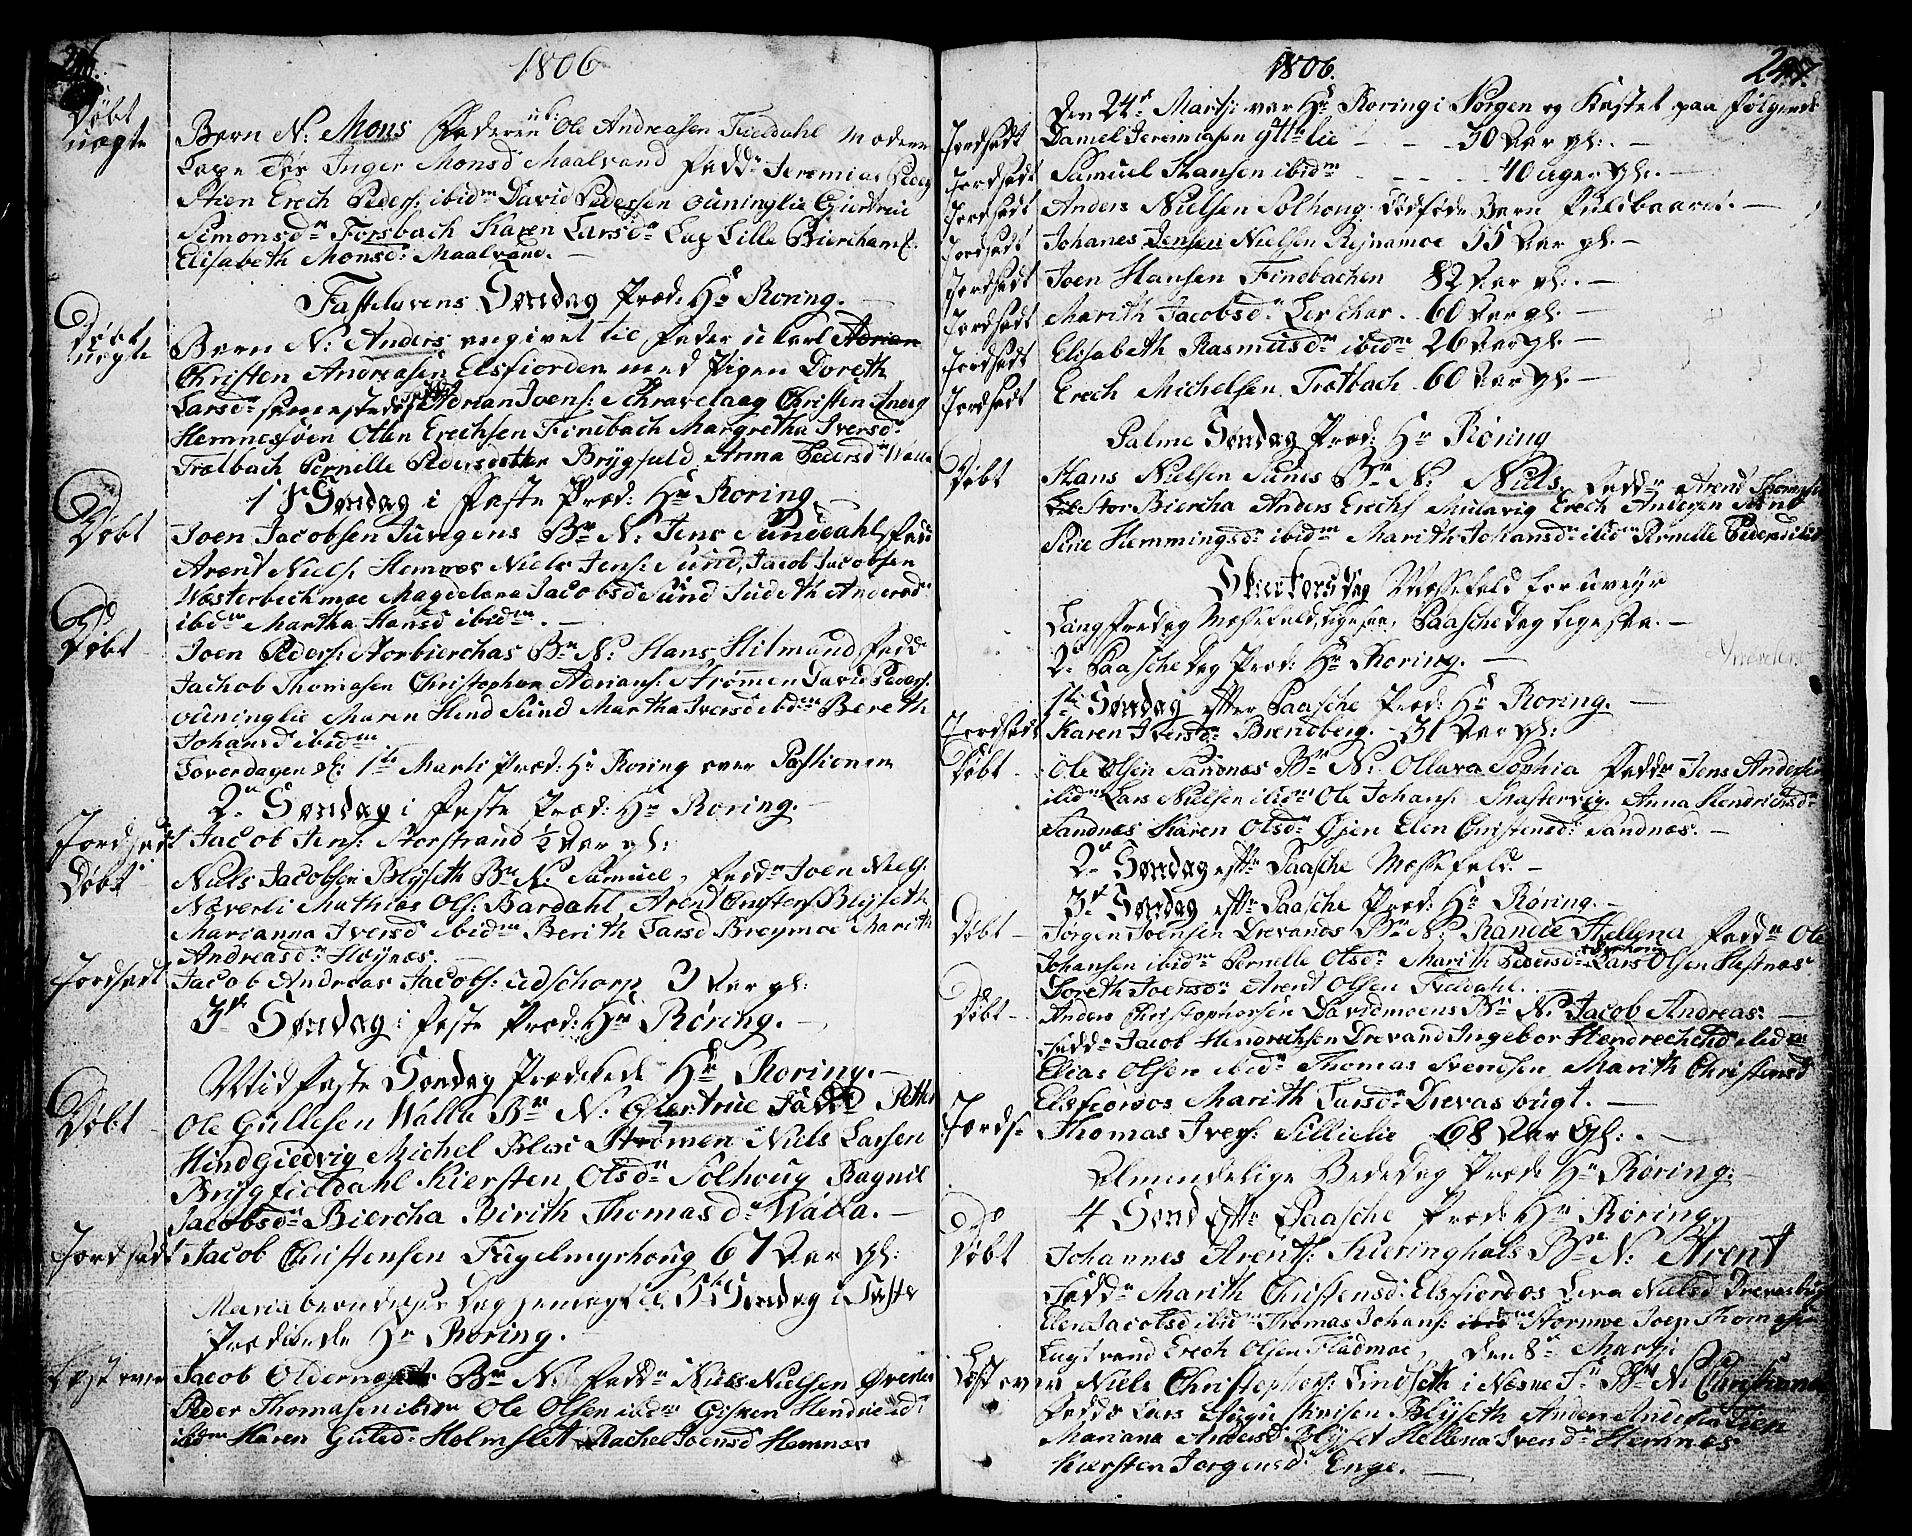 1806
Døbt
uægte
Barn N: Mons Faderen u k: Ole Andreasen Fieldahl Moderen
Lape Tøs Inger Monsd Maalvand Fadd: Jeremias Peders
Stien Erech Peders: ibidm David Pedersen ouninglie Giertrue
Simonsdr Forsbach Karen Larsdr Lap Lille Bierchamf:
Elisabeth Monsd: Maalvand. —
Fastelavens Søndag Præd: Hr Røring. —
Døbt
uægte
Barn N: Anders angivet til Fader u karl Adrian
Christen Andreasen Elsfiorden med Pigen Doreth
Larsdr samestæds Fadd Adrian Joens: Skravelaag Christen Anerg
Hemnessøen Otten Erechsen Finebach Margretha Iversdr
Trælbach Pernelle Pedersdatter Brygfield Anna Pedersdr Walla
1ste Søndag i Faste Præd: Hr Røring —
Døbt
Joen Jacobsen Jurgens Br N: Jens Sunddahl, Fadd
Arent Niels: Hemnæs Niels Jens: Sund, Jacob Jacobsen
Wæsterbechmoe Magdelena Jacobsd Sund Judeth Andersdr
ibidm Martha Hansd ibidm. —
Døbt
Joen Peders: Storbierchas Br N: Hans Hilmand Fadd
Jachob Thomasen Christopher Adrians: Strømen David Peders:
ouninglie Maren Hend Sund Martha Iversd ibidm Bereth
Johansd ibidm
Løverdagen d: 1ste Marti Præd: Hr Røring over Passionen
2. Søndag i Faste Præd: Hr Røring. —
Jordfæst Jacob Jens: Storstrand ½ Aar gl:
Døbt
Niels Jacobsen Blyseth Br N: Samuel, Fadd: Joen Niels:
Næverli Mathias Ols: Bardahl Arent Christens Blyseth
Marianna Iversd ibidm Berith Larsd Breymoe Marith
Andreasdr Høynæs.
Jordfæst Jacob Andreas Jacobs: udschorp 3 Aar gl:
3de Søndag i Faste Præd: Hr Røring. —
Midfaste Søndag Prædikede Hr Røring. —
Døbt
Ole Gullesen Walle Br N: Giertrue Fadd Petter
Hindgiedvig Michel Blesi Strømen Niels Larsen
Brygfieldahl Kiersten Olsdr Solhoug Ragnil
Jacobsdr Biercha Birith Thomasdr Walla. —
Jordfæst Jacob Christensen Fugelmyrhoug 67 Aar gl:
Maria 5te Søndag i Faste
Prædikede Hr Røring. —
Læst over Jacob Br N: Fadd: Niels Nielsen Øverlei
Peder Thomasen ibidm Ole Olsen ibidm Gisken Hendrichsdr
ibidm Karen Guled: Holmslet Rachel Joensd Hemnæs
1806.
Den 24de Martii var Hr Røring i Norgen og Kastet paa følgende
Jordfæst Daniel Jeremiasen ytterlie — — 50 Aar gl: —
Jordfæst Samuel Hansen ibidm — — — 40 uger gl: —
Jordfæst Anders Nielsen Solhong Dødføde Barn fuldbaaret. —
Jordfæst Johanes Jensen Nielsen Rejnamoe 55 Aar gl: —
Jordfæst Joen Hansen Finebachen 82 Aar gl: —
Jordfæst Marith Jacobsd: Lerchar. 60 Aar gl: —
Jordfæst Elisabeth Rasmusdr ibidm 26 Aar gl: —
Jordfæst Erech Michelsen Trælbach 60 Aar gl: —
Palme Søndag Præd: Hr Røring
Døbt
Hans Nielsen Sunds Br N: Niels, Fadd: Arend Thomæs
Stor Biercha Anders Erechs Erech Andersen Sund
Sine Hemmingsdr ibidm Marith Johansdr ibidm Pernelle Pedersd ibidm
Skiertorsdag Mæssefald for uveyr
Langfredag Mæssefald, ligesaa, Paaschedag ligesaa. —
2. Paaschedag Præd: Hr Røring. —
1ste Søndag efter Paasche Præd: Hr Røring. —
Jordfæst Karen Iversdr Brendberg. 31 Aar gl:
Døbt Ole Olsen Sandnæs Br N: Ollava Sophia Fadd: Jens Andersen
ibidm Lars Nielsen ibidm Ole Johans: Mastervig. Anna Hendrichsdr
Sandnæs Karen Olsdr Øjen Elen Christensd: Sandnæs. —
2. Søndag eftr Paasche Mæssefald. —
3de Søndag eftr Paasche Præd: Hr Røring. —
Døbt Jørgen Joensen Drevands Br N: Randie Hellena, Fadd: Ole
Johansen ibidm Pernelle Olsdr Marith Pedersdr Lars Olsen Hestnæs
Doreth Joensdr Arent Olsen Fieldahl.
Døbt Anders Christophersen Davidmoens Br N: Jacob Andreas: —
Fadd: Jacob Hendrechsen Drevand Ingebor Hendrechsd ibidm
Elias Olsen ibidm Thomas Svendsen Marith Christensd
Elsfiordos Marith Larsdr Drevas bugt. —
Jordf: Thomas Ivers: Sillielie 68 Aar gl: —
Almindelige Bededag Præd: Hr Røring. —
4 Sønd eftr Paasche Præd: Hr Røring
Døbt Johannes Arents: Kieringhals Br N: Arent
Fadd: Marith Christensd: Elsfiordos Lena Nielsd Drevasbugt
Elen Jacobsd ibidm Thomas Johans: ibidm Stormoe Joen Thomasen
Lugtvand Erech Olsen Fladmoe, Den 8de Martii
Læst over Niels Christophers: Lindseth i Næsne Br N: Christiana
Fadd: Lars Blyseth Anders
Mariana Andersd Blyset Hellena Iversdr Hemnæs
Kiersten Jørgensd: Enge. —